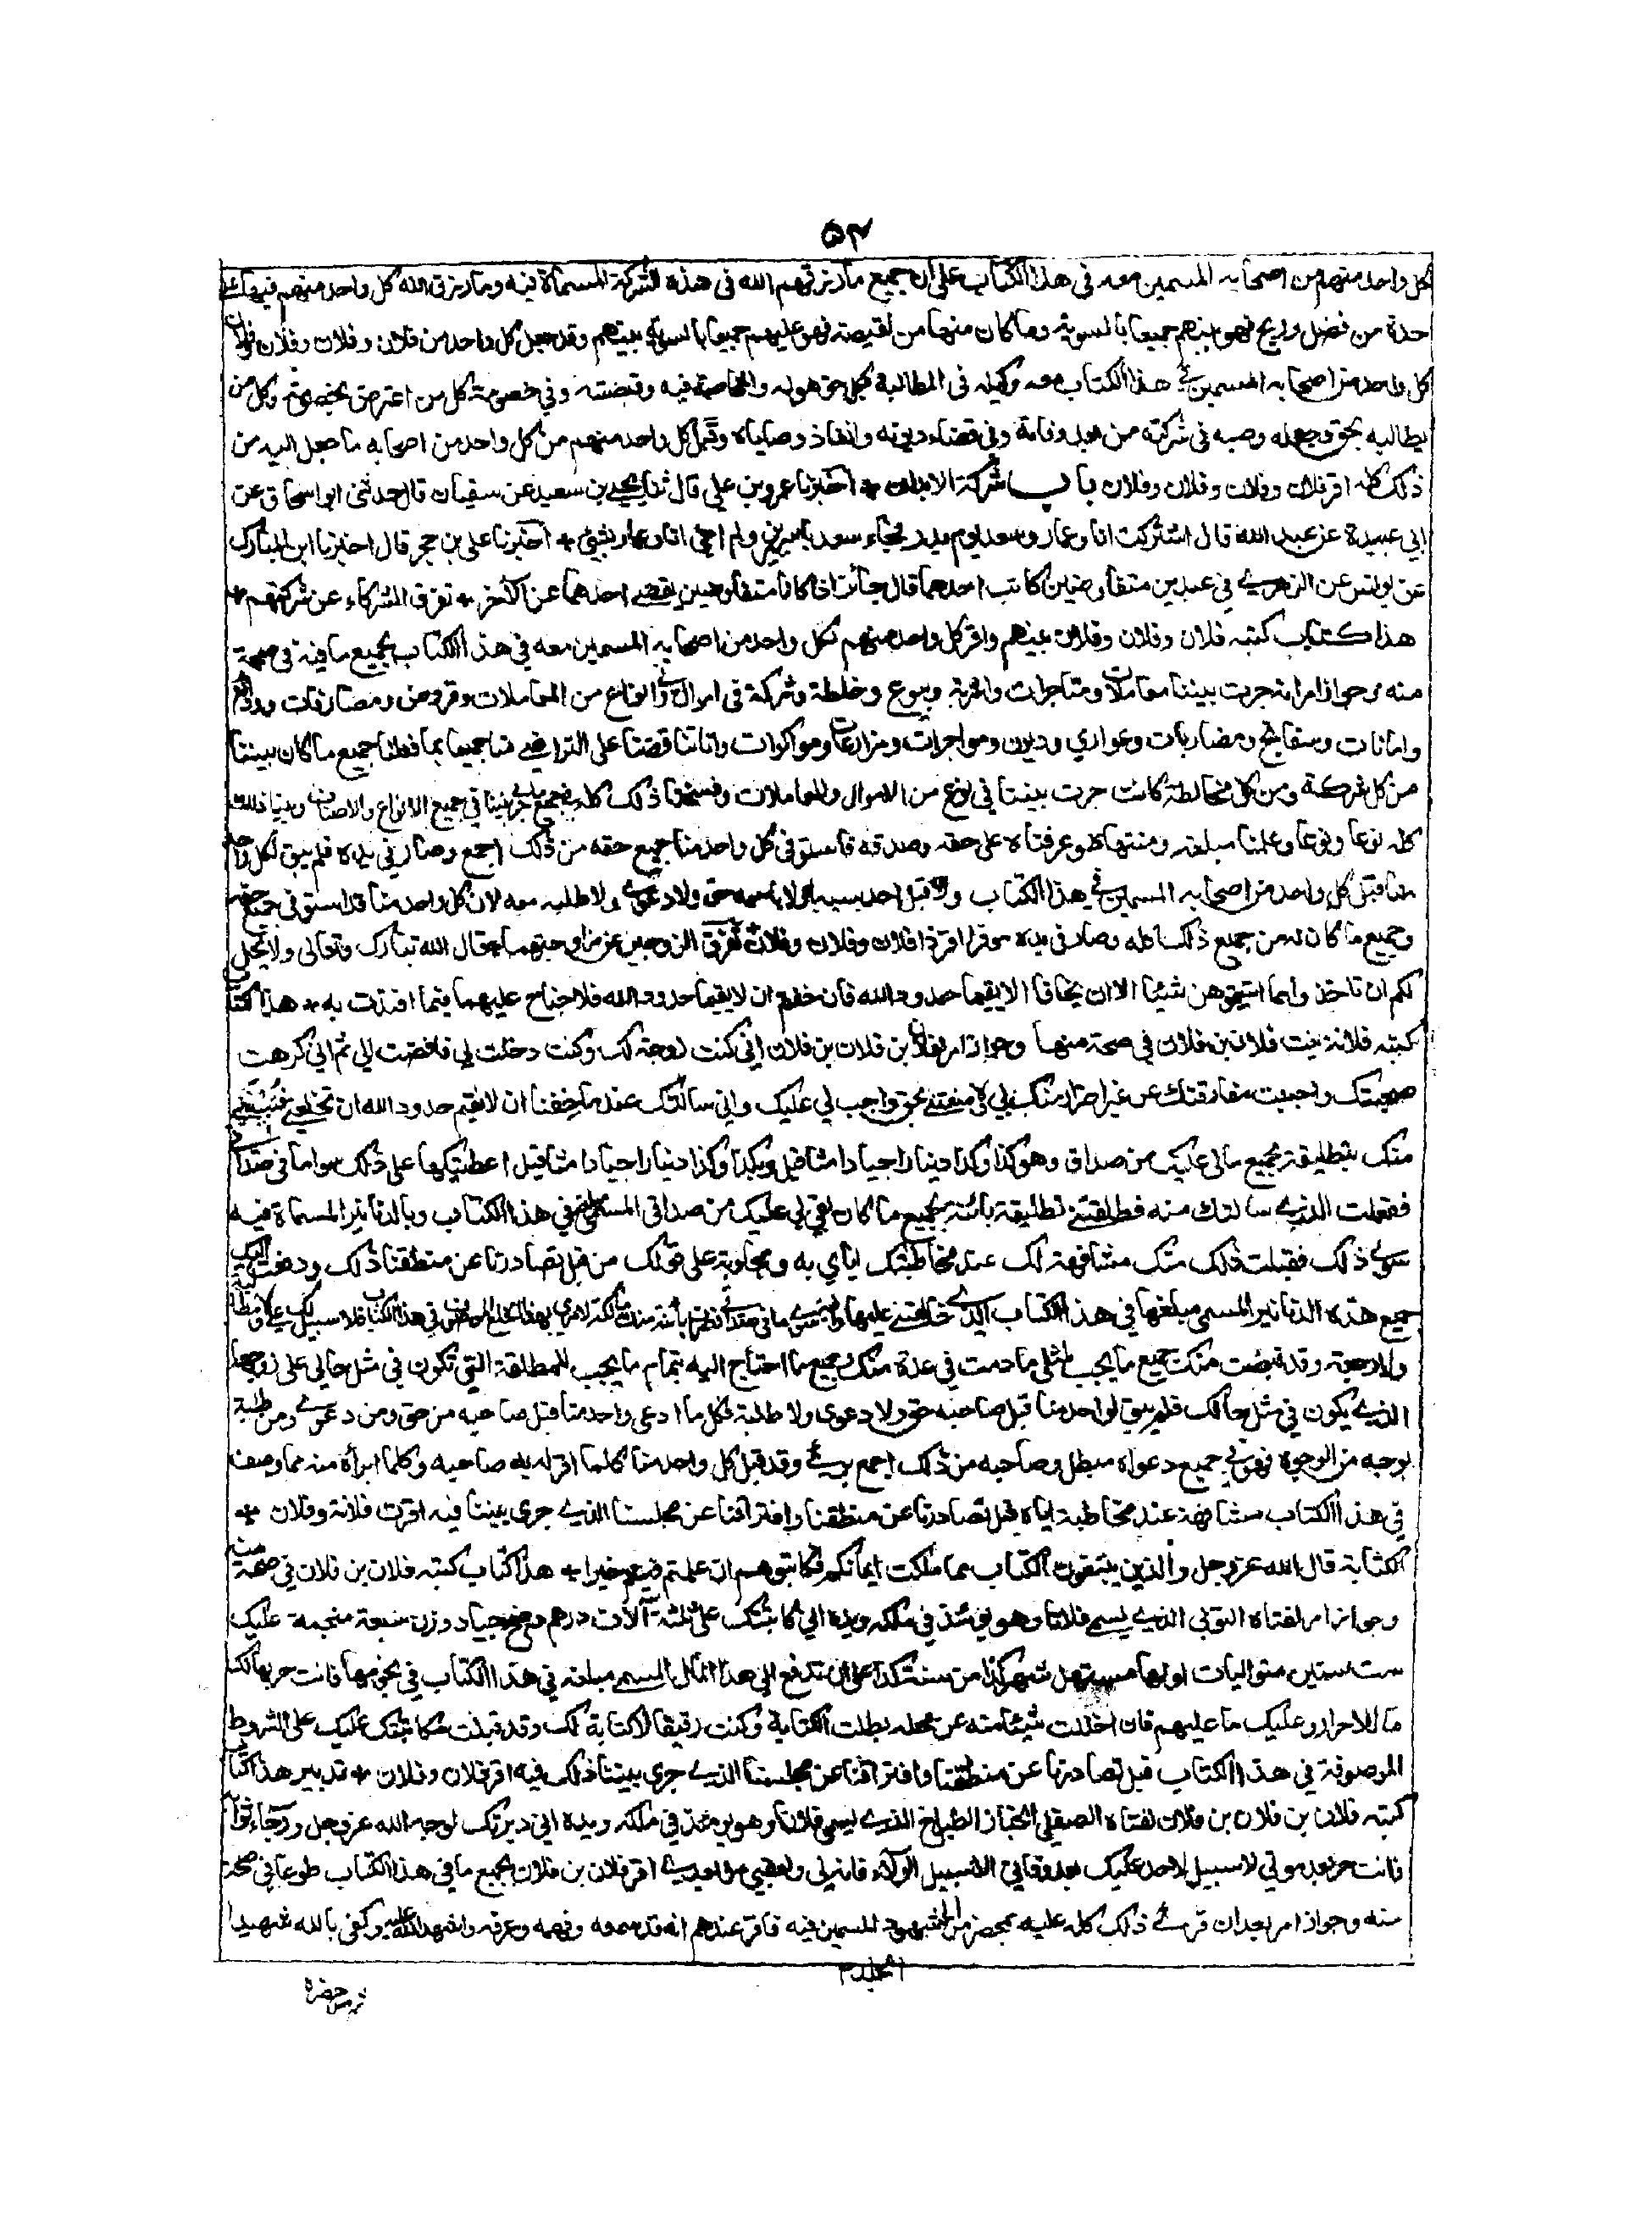 ٥٣
كل واحد منهم من اصحابه المسمين معه فى هذا الكتاب على ان جميع ما رزقهم الله فى هذه الشركة المسماة فيه وما رزق الله كل واحد منهم فيها على
حدة من فضل وربح فهو بينهم جميعا بالسوية وما كان منها من نقيصة فهو عليهم جميعا بالسوية بينهم وقد جعل كل واحد من فلان وفلان وفلان وفلان
كل واحد من اصحابه المسمين فى هذا الكتاب معه وكيله فى المطالبة بكل حق هو له والمخاصمة فيه وقبضته وفي خصومة كل من اعترض بخصومة وكل من
يطالبه بحق وجعله وصيه فى شركته من بعد وفاته وفى قضاء ديونه وانفاذ وصاياه وقبل كل واحد منهم من كل واحد من اصحابه ما جعل اليه من
ذلك كله اقر فلان وفلان وفلان وفلان باب شركة الابدان * اخبرنا عمرو بن علي قال ثنا يحيى بن سعيد عن سفيان قال حدثنى ابو اسحاق عن
ابي عبيدة عن عبد الله قال اشتركت انا وعمار وسعد يوم بدر فجاء سعد باسيرين ولم اجئ انا وعمار بشئ * اخبرنا على بن حجر قال اخبرنا ابن المبارك
عن يونس عن الزهرى فى عبدين متفاوضين كاتب احدهما قال جائز اذا كانا متفاوضين يقضى احدهما عن الآخر * تفرق الشركاء عن شركتهم *
هذا كتاب كتبه فلان وفلان وفلان بينهم واقر كل واحد منهم لكل واحد من اصحابه المسمين معه فى هذا الكتاب بجميع ما فيه فى صحة
منه وجواز امر انه جرت بيننا معاملات ومتاجرات واشربة وبيوع وخلطة وشركة فى اموال وفى انواع من المعاملات وقروض ومصارفات وودائع
وامانات وسفاتج ومضاربات وعواري وديون ومواجرات ومزارعات ومواكرات وانا تناقضنا على التراضى منا جميعا بما فعلنا جميع ما كان بيننا
من كل شركة ومن كل مخالطة كانت جرت بيننا فى نوع من الاموال والمعاملات وفسخنا ذلك كله فى جميع ما جرى بيننا فى جميع الانواع والاصناف وبينا ذلك
كله نوعا نوعا وعلمنا مبلغه ومنتهاه وعرفناه على حقه وصدقه فاستوفى كل واحد منا جميع حقه من ذلك اجمع وصار في يده فلم يبق لكل واحد
منا قبل كل واحد من اصحابه المسمين فى هذا الكتاب ولا قبل احد بسببه ولا باسمه حق ولا دعوى ولا طلبه معه لان كل واحد منا قد استوفى جميع حقه
وجميع ما كان له من جميع ذلك كله وصار فى يده موفرا اقر فلان وفلان وفلان وفلان * تفرق الزوجين عن مزاوجتهما قال الله تبارك وتعالى ولا يحل
لكم ان تاخذوا مما آتيتموهن شيئا الا ان يخافا الا يقيما حدود الله فان خفتم ان لا يقيما حدود الله فلا جناح عليهما فيما افتدت به * هذا كتاب
كتبه فلانة بنت فلان بن فلان في صحة منها وجواز امر لفلان بن فلان بن فلان اني كنت زوجة لك وكنت دخلت بي فافضيت الي ثم اني كرهت
صحبتك واحببت مفارقتك عن غير اضرار منك بي ولا منعتنى بحق واجب لي عليك واني سالتك عندما خفنا ان لا نقيم حدود الله ان تخلعنى فتبيننى
منك بتطليقة بجميع مالى عليك من صداق وهو كذا وكذا دينارا جيادا مثاقيل وبكذا وكذا دينارا جيادا مثاقيل اعطيتكها على ذلك سوا ما في صداقي
ففعلت الذى سالتك منه فطلقتنى تطليقة بائنة بجميع ما كان بقي لي عليك من صداقى المسمى فى هذا الكتاب وبالدنانير المسماة فيه
سوى ذلك فقبلت ذلك منك مشافهة لك عند مخاطبتك اياي به ومجاوبة على قولك من قبل تصادرنا عن منطقنا ذلك ودفعت اليك
جميع هذه الدنانير المسمى مبلغها فى هذا الكتاب الذى خالعتنى عليها وافية سوى ما فى صداقى فصرت بائنة منك مالكة لامري بهذا الخلع الموصوف فى هذا الكتاب فلا سبيل لك علي ولا مطالبة
ولا رجعة وقد قبضت منك جميع ما يجب لمثلى ما دمت في عدة منك وجميع ما احتاج اليه بتمام ما يجب للمطلقة التى تكون فى مثل حالي على زوجها
الذى يكون في مثل حالك فلم يبق لواحد منا قبل صاحبه حق ولا دعوى ولا طلبة فكل ما ادعى واحد منا قبل صاحبه من حق ومن دعوى ومن طلبة
بوجه من الوجوه فهو فى جميع دعواه مبطل وصاحبه من ذلك اجمع برئ وقد قبل كل واحد منا كلما اقر له به صاحبه وكلما ابرأه منه مما وصف
في هذا الكتاب مشافهة عند مخاطبته اياه قبل تصادرنا عن منطقنا وافتراقنا عن مجلسنا الذى جرى بيننا فيه اقرت فلانة وفلان *
الكتابة قال الله عز وجل والذين يبتغون الكتاب مما ملكت ايمانكم فكاتبوهم ان علمتم فيهم خيرا * هذا كتاب كتبه فلان بن فلان في صحة منه
وجواز امر لفتاه النوبى الذى يسمى فلانا وهو يومئذ في ملكه ويده اني كاتبتك على ثلثة آلاف درهم وضح جياد وزن سبعة منجمة عليك
ست سنين متواليات اولها مستهل شهر كذا من سنة كذا على ان تدفع الي هذا المال المسمى مبلغه في هذا الكتاب في نجومها فانت حر بها لك
ما للاحرار وعليك ما عليهم فان اخللت شيئا منه عن محله بطلت الكتابة وكنت رقيقا لا كتابة لك وقد قبلت مكاتبتك عليك على الشروط
الموصوفة في هذا الكتاب قبل تصادرنا عن منطقنا وافتراقنا عن مجلسنا الذى جرى بيننا ذلك فيه اقر فلان وفلان * تدبير هذا كتاب
كتبه فلان بن فلان بن فلان لفتاه الصقلي الخباز الطباخ الذى يسمى فلانا وهو يومئذ في ملكه ويده اني دبرتك لوجه الله عز وجل ورجاء ثوابه
فانت حر بعد موتي لا سبيل لاحد عليك بعد وفاتي الا سبيل الولاء فانه لى ولعقبي من بعدى اقر فلان بن فلان بجميع ما في هذا الكتاب طوعا في صحة
منه وجواز امر بعد ان قرئ ذلك كله عليه بمحضر من الشهود المسمين فيه فاقر عندهم انه قد سمعه وفهمه وعرفه واشهد الله عليه وكفى بالله شهيدا